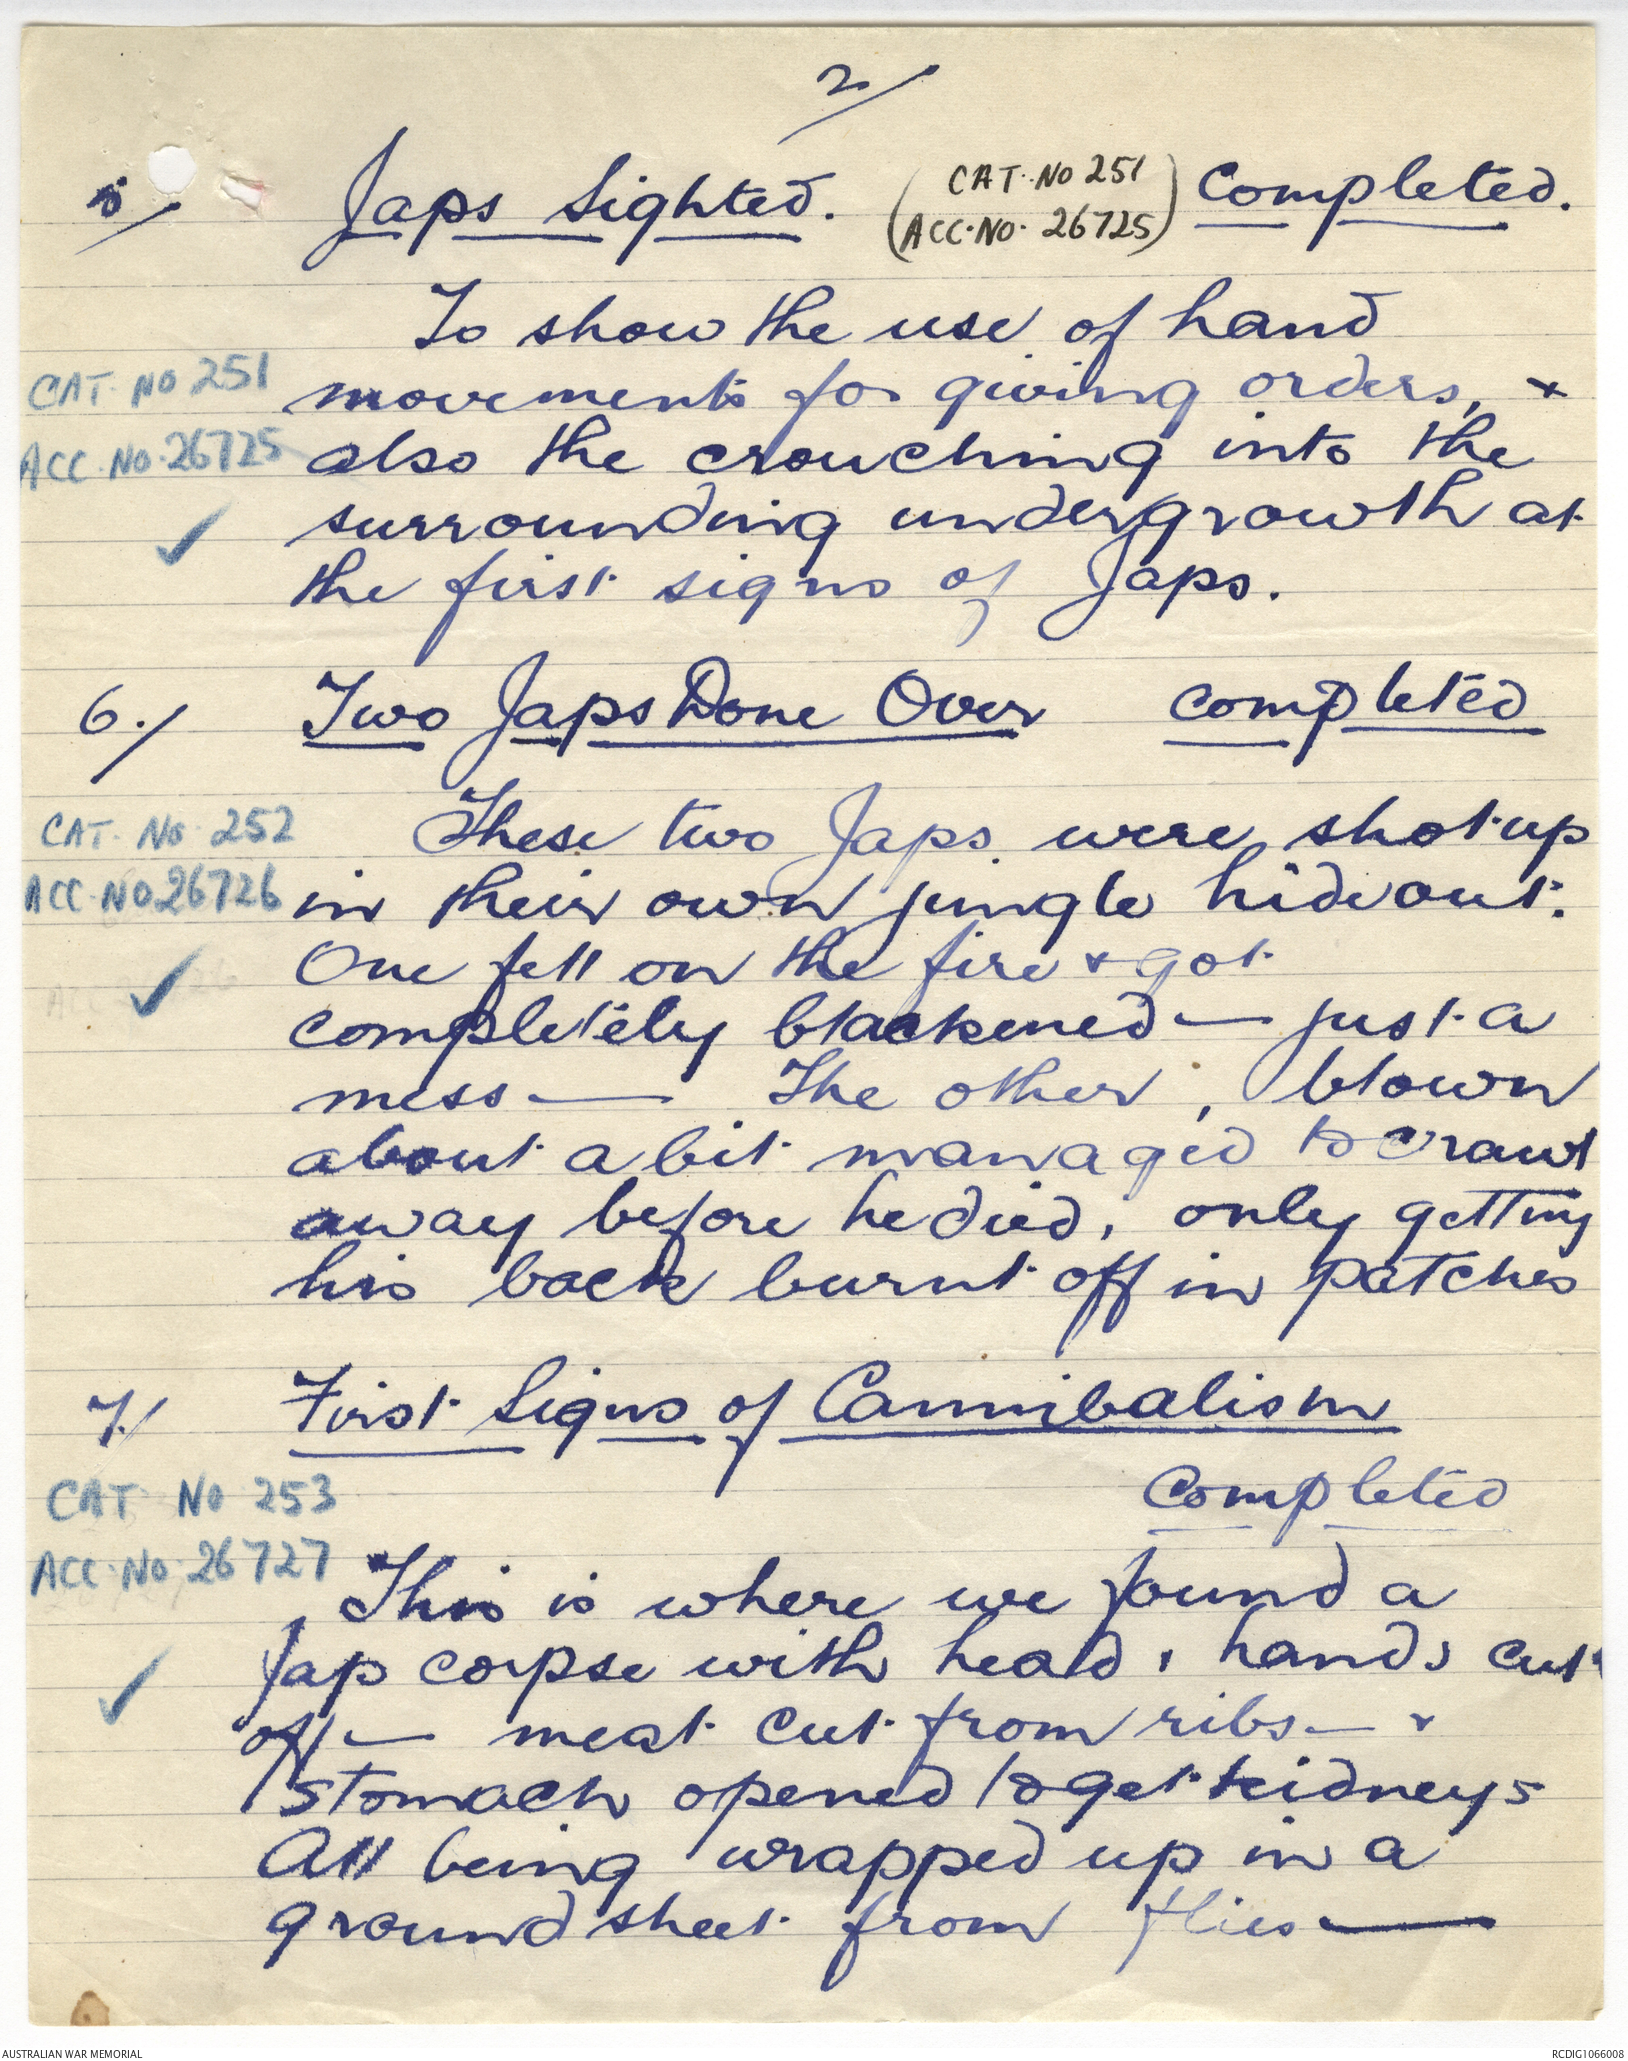 2/
5/ Japs Sighted. (CAT. NO 251 ACC. NO. 26725) Completed.
To show the use of hand
CAT. NO 251 movements for giving orders, +
ACC. NO. 26725 also the crouching into the
surrounding undergrowth at
the first signs of Japs.
6./ Two Japs Done Over completed
CAT. NO. 252 These two Japs were shot up
ACC. NO 26726 in their own jungle hideout.
One fell on the fire + got
completely blackened — just a
mess — The other, blown
about a bit managed to crawl
away before he died, only getting
his back burnt off in patches
7./ First Signs of Cannibalism
CAT No 253 Completed
ACC. No. 26727
This is where we found a
Jap corpse with head, hands cut
off — meat cut from ribs — +
stomach opened to get kidneys
All being wrapped up in a
ground sheet from flies —
AUSTRALIAN WAR MEMORIAL RCDIG1066008